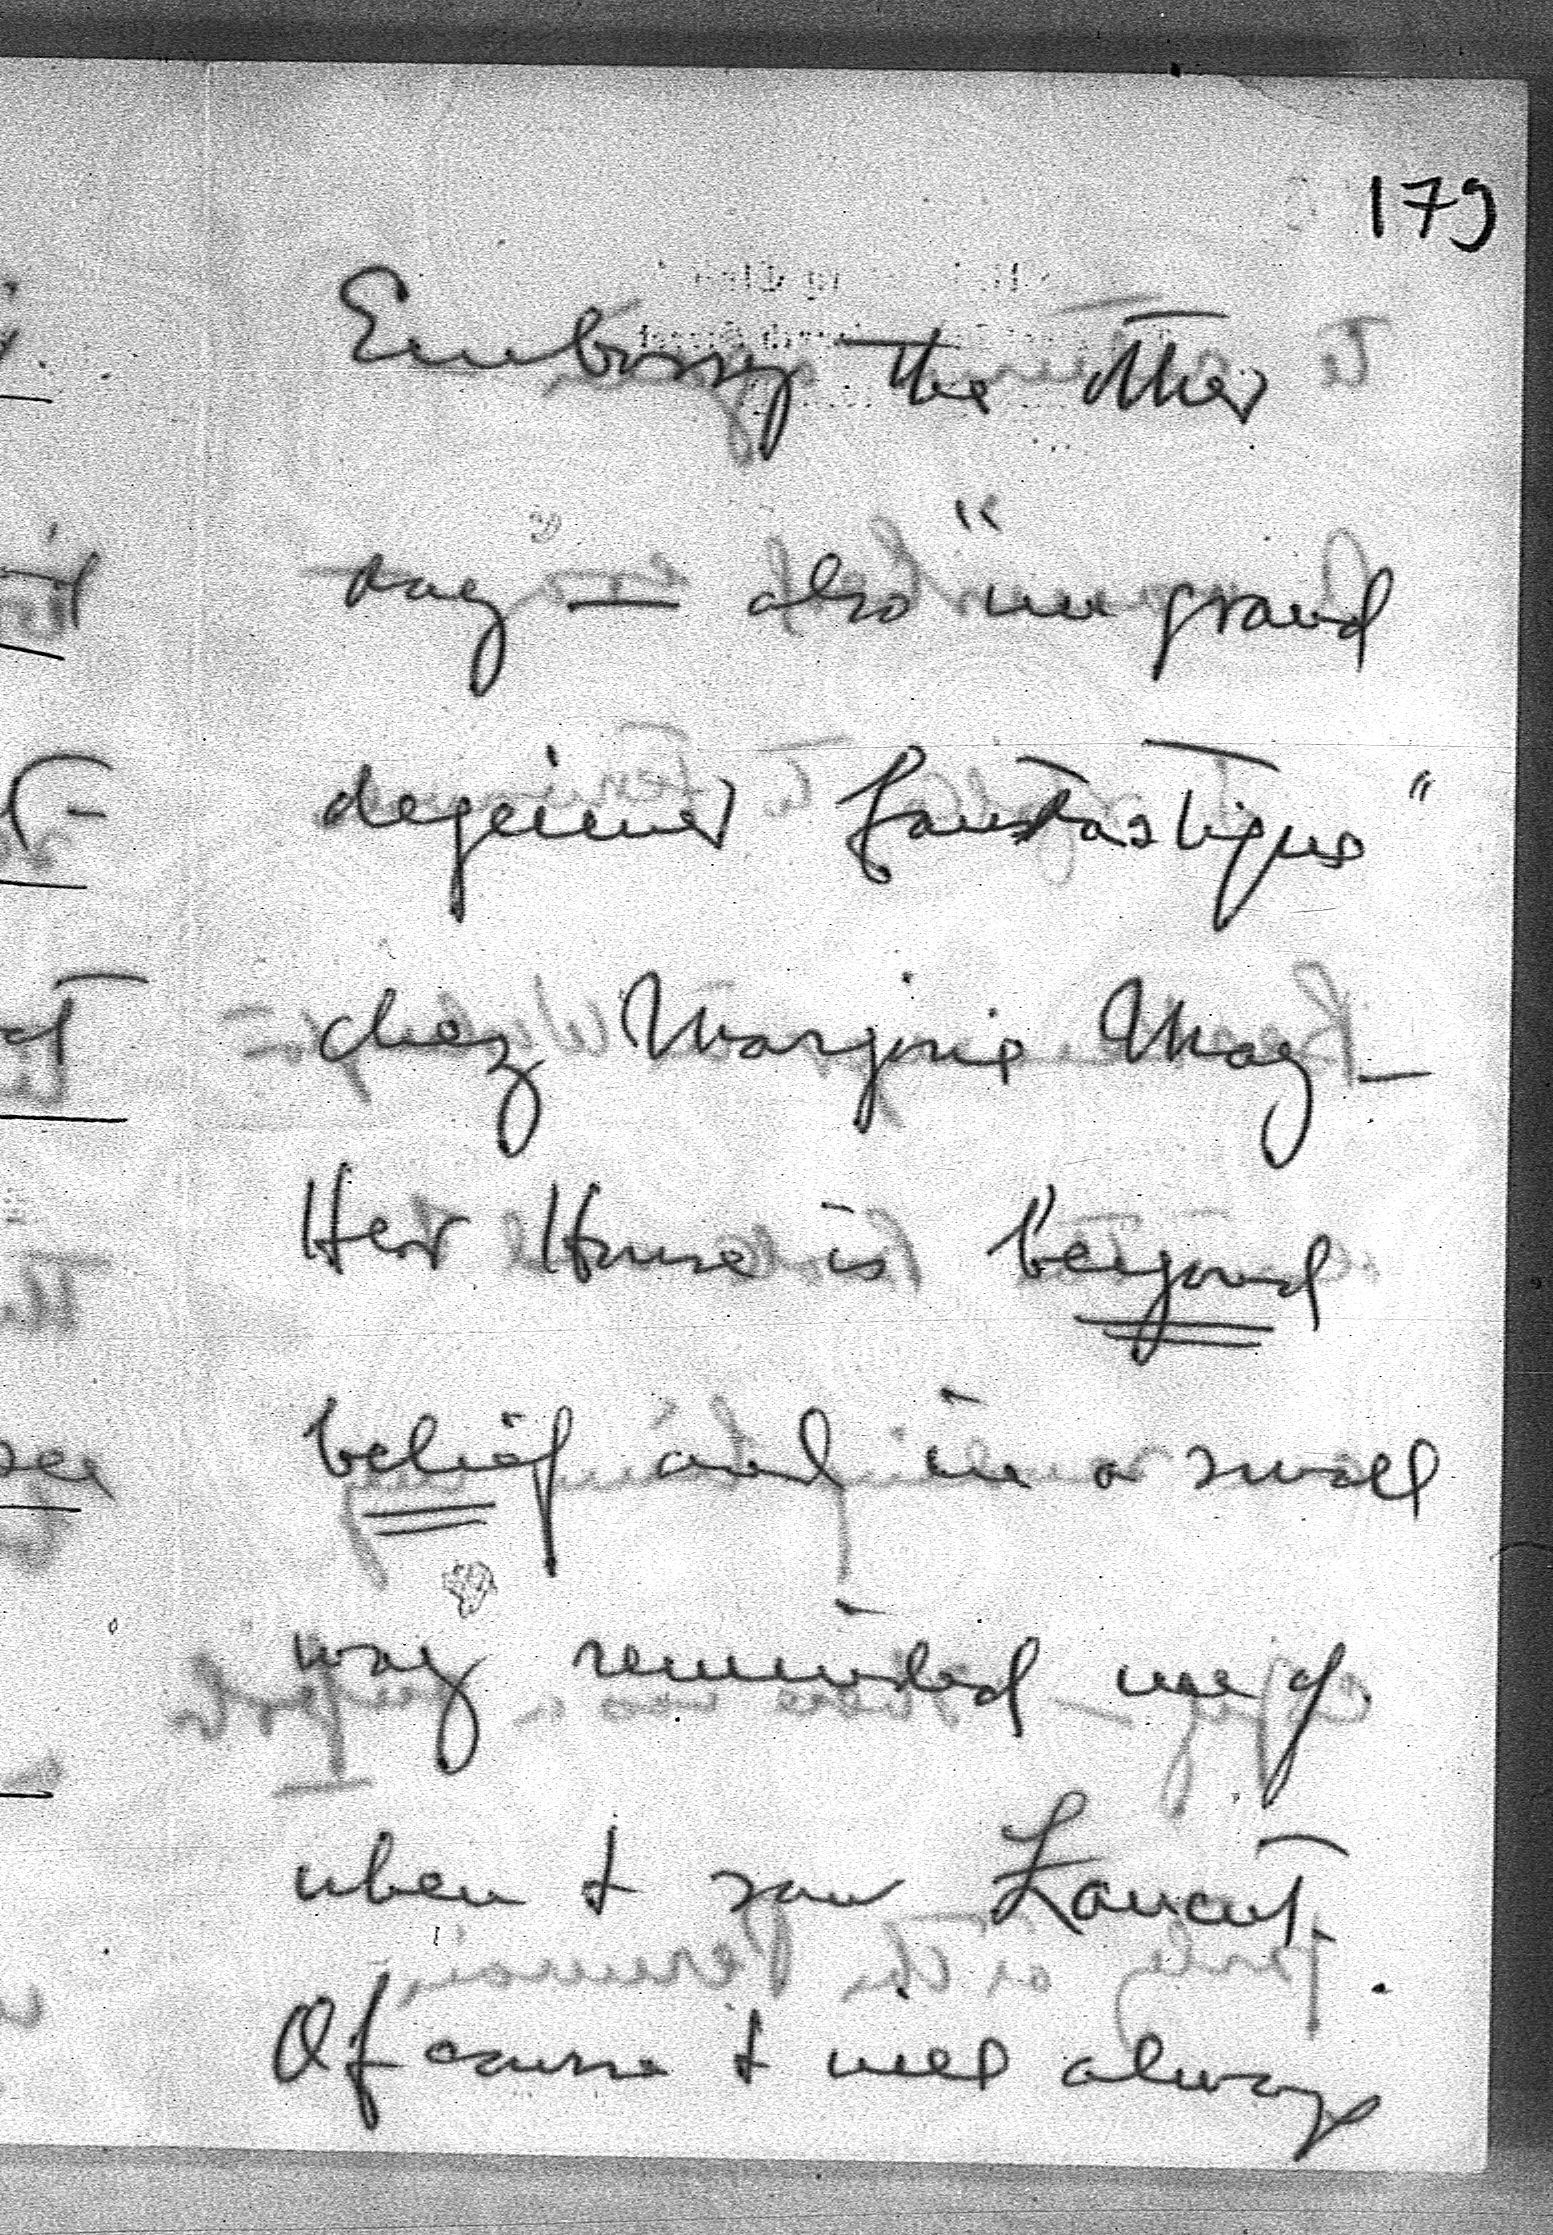 179
Embassy the other
day — also "un grand
dejeiner fantastique"
chez Marjorie May —
Her House is beyond
belief and in a small
way reminded me of
when I saw
Of course I will always